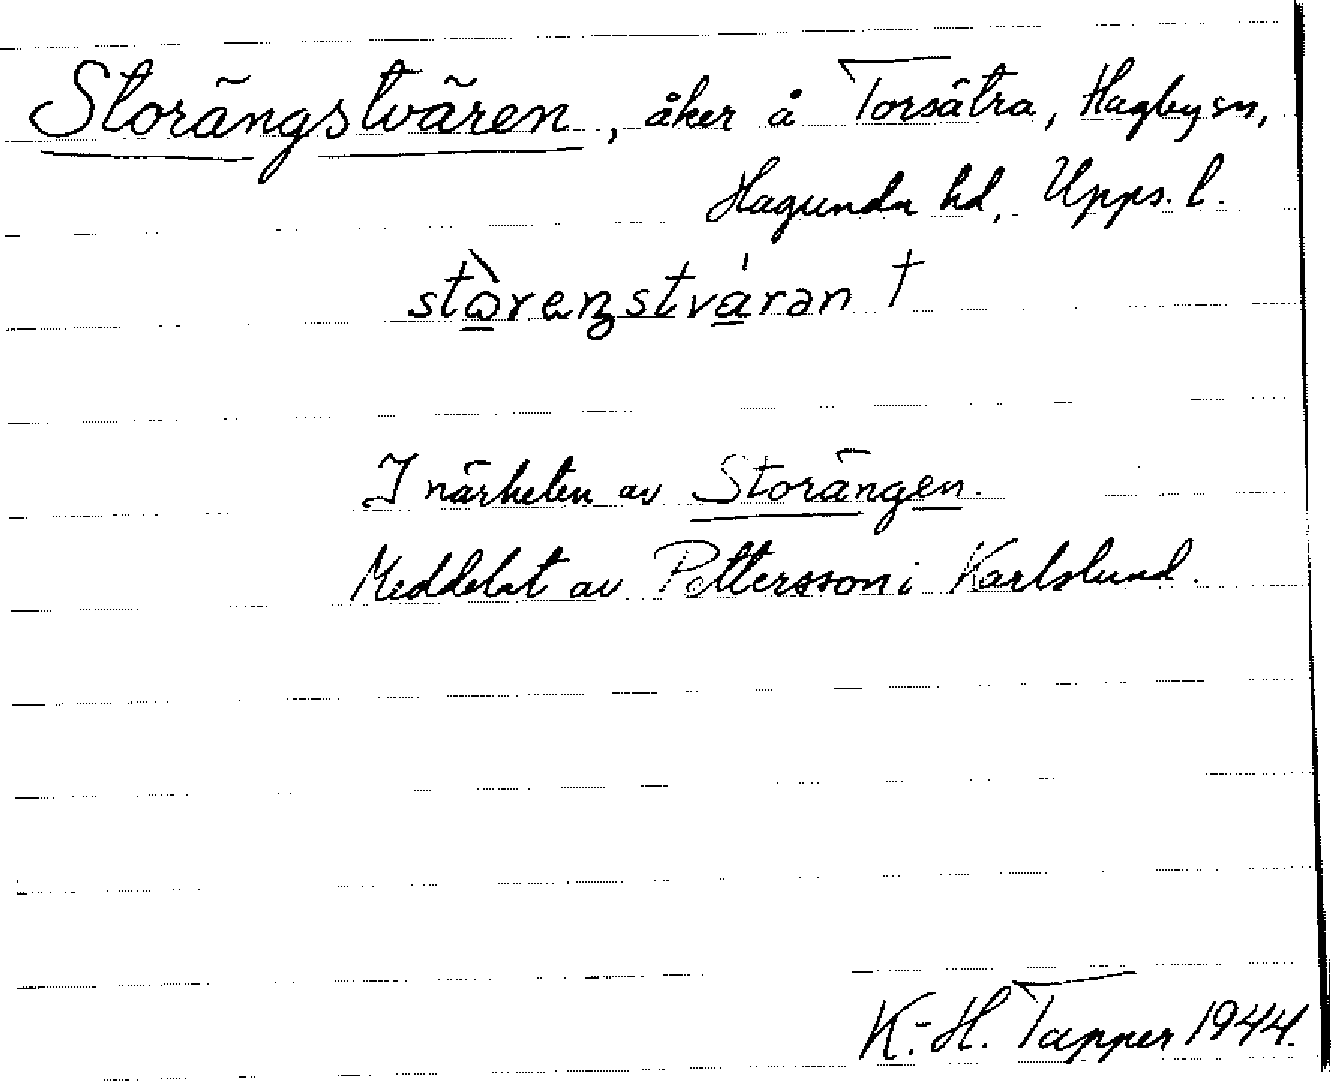 Storängstvären, åker å Torsätra, Hagby sn,
Hagunda hd, Upps. l.
stòrenstváran †
I närheten av Storängen.
Meddelat av Pettersson i Karlslund.
K.-H. Tapper 1944.